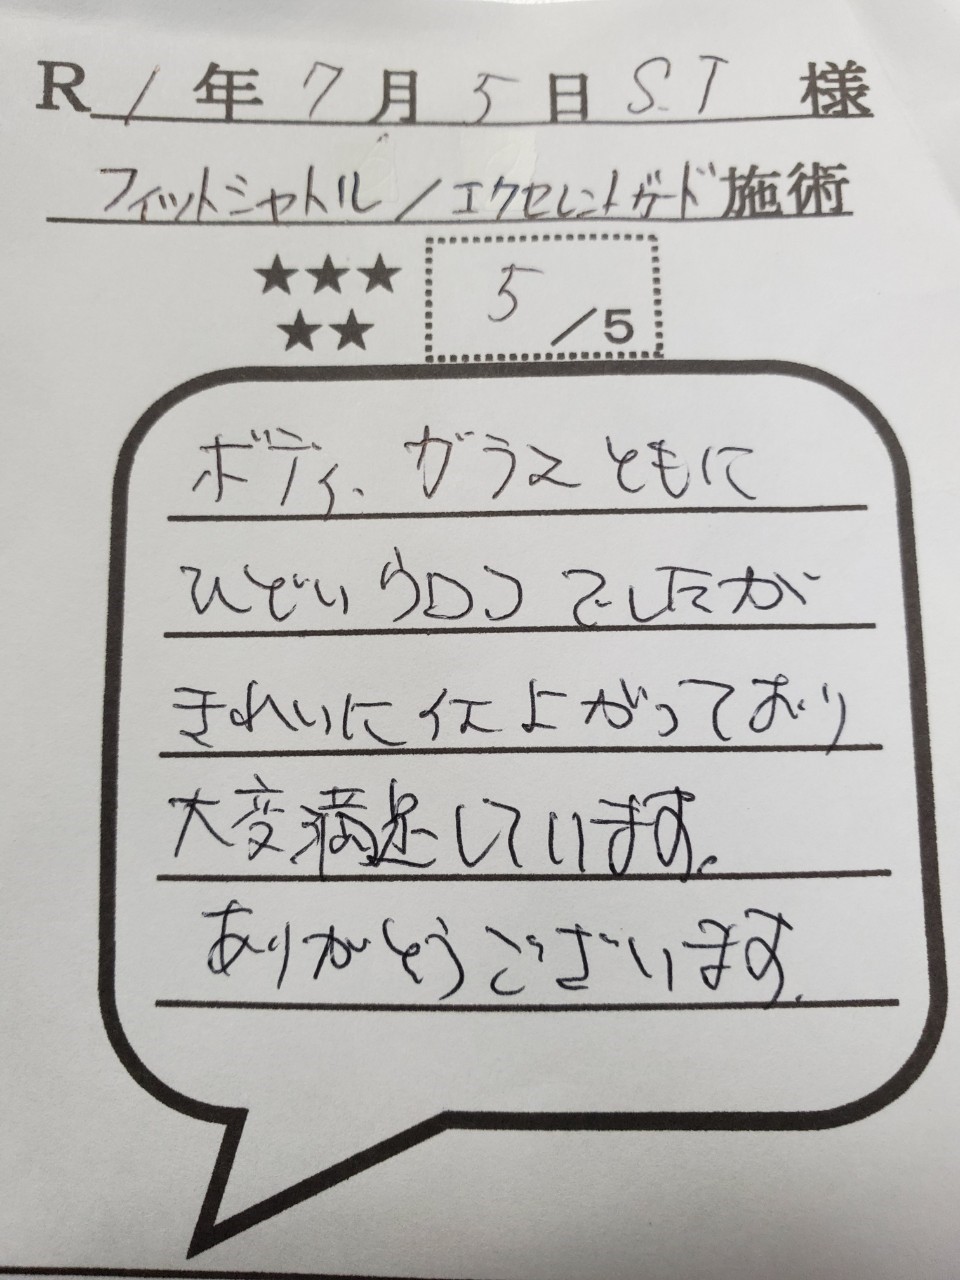 R 1年 7月 5日 S.T 様
フィットシャトル/エクセレントガード施術
★★★
★★
5/5
ボディ、ガラスともに
ひどいウロコでしたが
きれいに仕上がっており
大変満足しています。
ありがとうございます。